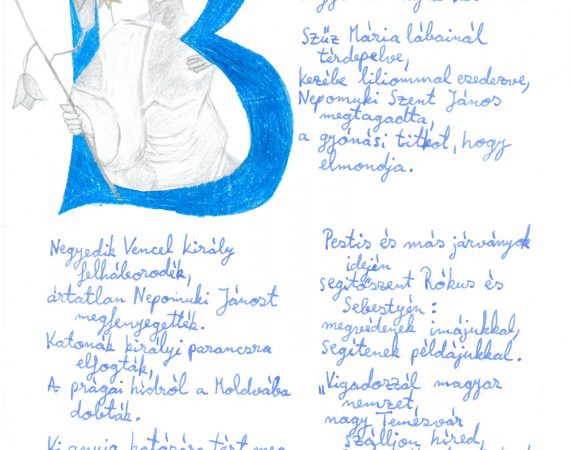 B
Szűz Mária lábainál
térdepelve,
kezébe liliommal ezedezve,
Nepomuki Szent János
megtagadta,
a gyónási titkot, hogy
elmondja.
Negyedik Vencel király
felháborodék,
ártatlan Nepomuki Jánost
megfenyegették.
Katonák királyi parancsra
elfogták,
A prágai hídról a Moldvába
dobták.
Pestis és más járványok
idején
segítőszent Rókus és
Sebestyén:
megvédenek imájukkal,
segítenek példájukkal.
„Vigadozzál magyar
nemzet,
nagy Temesvár
szálljon híred,